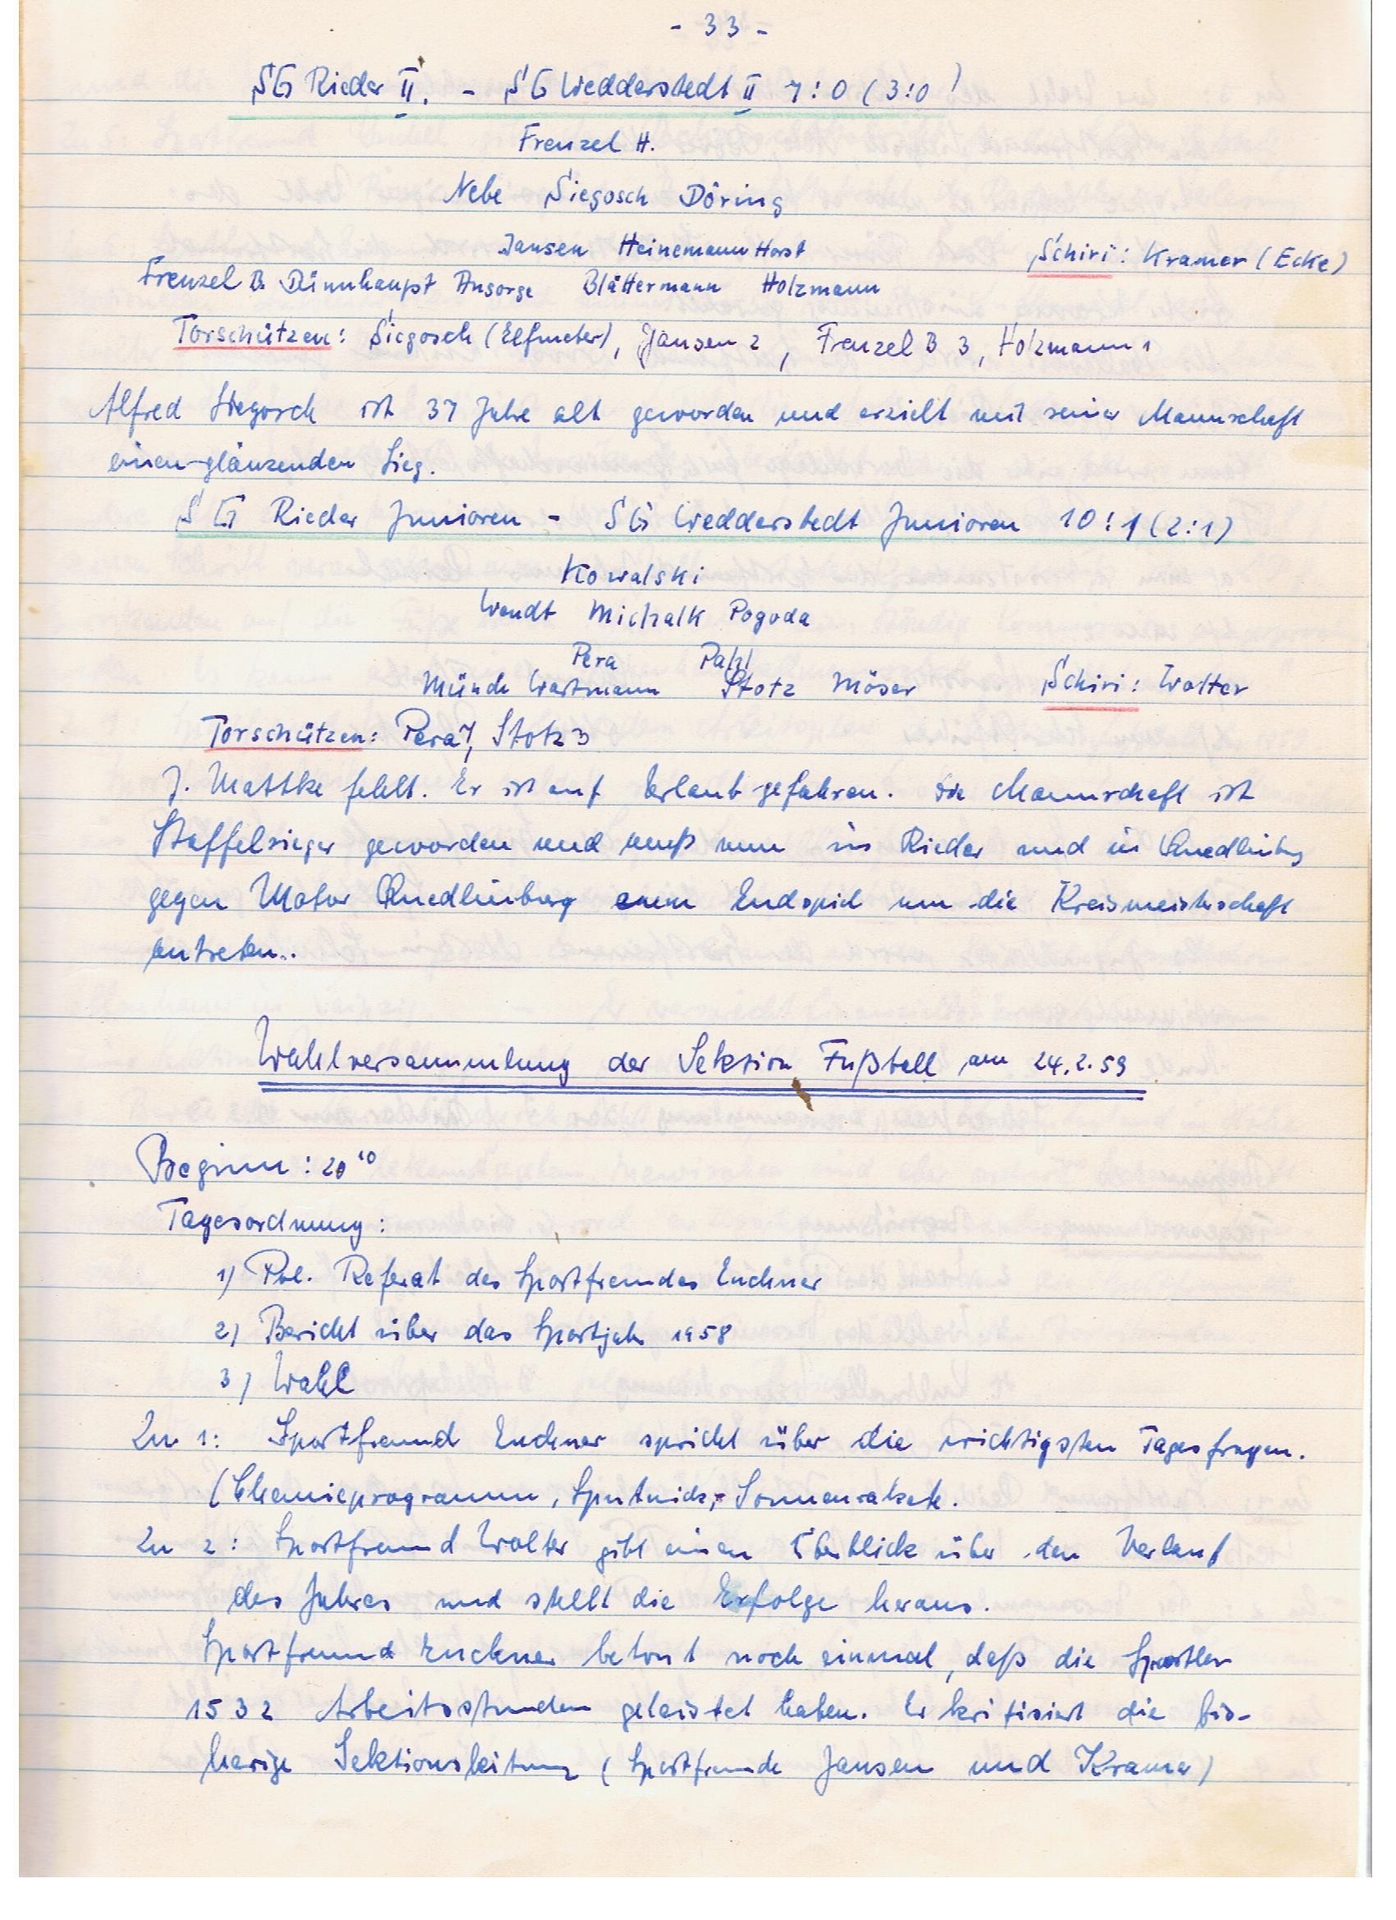 - 33 -
SG Rieder II. - SG Wedderstedt II 7:0 (3:0)
Frenzel H.
Nebe Siegosch Döring
Jansen Heinemann Horst
Schiri: Kramer (Ecke)
Frenzel B. Dünnhaupt Ansorge Blättermann Holzmann
Torschützen: Siegosch (Elfmeter), Jansen 2, Frenzel B 3, Holzmann 1
Alfred Siegosch ist 37 Jahre alt geworden und erzielt mit seiner Mannschaft
einen glänzenden Sieg.
SG Rieder Junioren - SG Wedderstedt Junioren 10:1 (2:1)
Kowalski
Wendt Michalk Pogoda
Pera Pahl
Münch Wartmann Stotz Möser Schiri: Walter
Torschützen: Pera 7, Stotz 3
J. Mattke fehlt. Er ist auf Urlaub gefahren. Die Mannschaft ist
Staffelsieger geworden und muß nun in Rieder und in Quedlinburg
gegen Motor Quedlinburg zum Endspiel um die Kreismeisterschaft
antreten..
Wahlversammlung der Sektion Fußball am 24.2.59
Beginn: 20¹⁰
Tagesordnung:
1) Pol. Referat des Sportfreundes Euchner
2) Bericht über das Sportjahr 1958
3) Wahl
Zu 1: Sportfreund Euchner spricht über die wichtigsten Tagesfragen.
(Chemieprogramm, Sputnick,- Sonnenrakete.
Zu 2: Sportfreund Walter gibt einen Überblick über den Verlauf
des Jahres und stellt die Erfolge heraus.
Sportfreund Euchner betont noch einmal, daß die Sportler
1532 Arbeitsstunden geleistet haben. Er kritisiert die bis-
herige Sektionsleitung (Sportfreunde Jansen und Kramer)